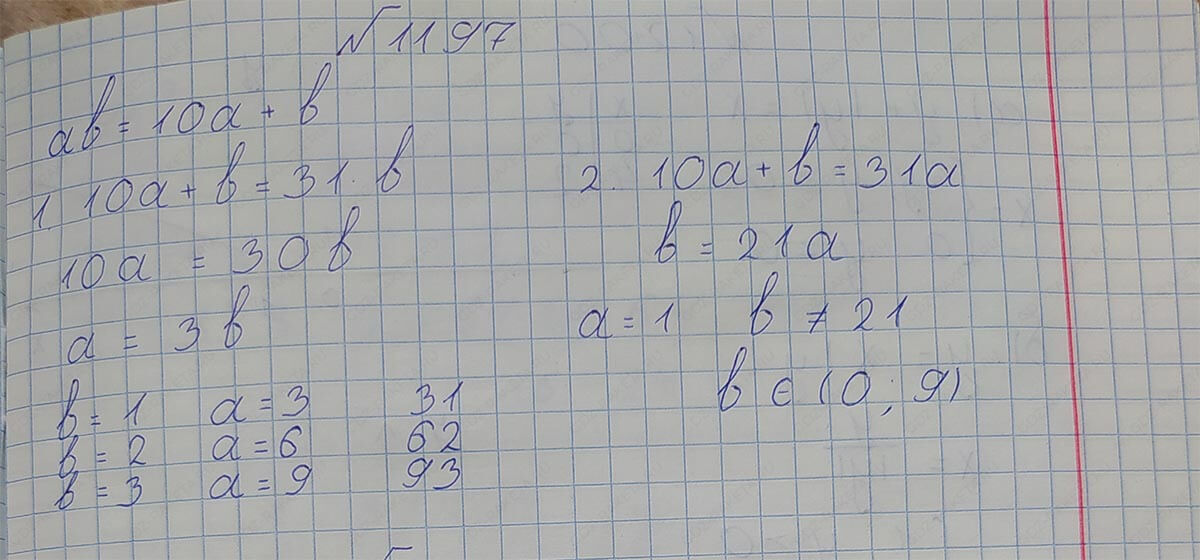 №1197
ab = 10a + b
1. 10a + b = 31 · b
10a = 30b
a = 3b
b = 1 a = 3 31
b = 2 a = 6 62
b = 3 a = 9 93
2. 10a + b = 31a
b = 21a
a = 1 b ≠ 21
b ∈ (0; 9)